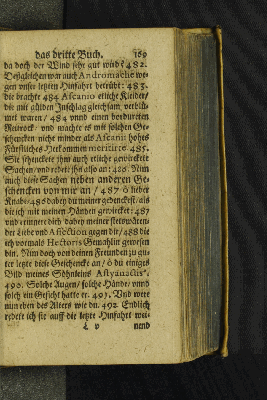 das dritte Buch. 169
da doch der Wind sehr gut wird? 482.
Deßgleichen war auch Andromache we-
gen unser letzten Hinfahrt betrübt: 483.
die brachte 484 Ascanio etliche Kleider/
die mit gülden Jnschlag gleichsam verblü-
met waren/ 484 vnnd einen bordureten
Reitrock/ vnd machte es mit solchen Ge-
schencken nicht minder als Ascanii hohes
Fürstliches Herkommen meritirte. 485.
Sie schenckete ihm auch etliche gewürckete
Sachen/ vnd redete ihn also an: 428. Nim
auch diese Sachen neben anderen Ge-
schencken von mir an/ 487 ô lieber
Knabe/ 486 dabey du meiner gedenckest/ als
die ich mit meinen Händen gewircket: 487
vnd erinnere dich dabey meiner stetswären-
der Liebe vnd Affection gegen dir/ 488 die
ich vormals Hectoris Gemahlin gewesen
bin. Nim doch von deinen Freunden zu gu-
ter letzte diese Geschencke an/ ô du einiges
Bild meines Söhnleins Astyanactis.
490. Solche Augen/ solche Hände/ vnnd
solch ein Gesicht hatte er. 491. Vnd were
nun eben des Alters wie du. 492 Endlich
redete ich sie auff die letzte Hinfahrt wei-
L v nend